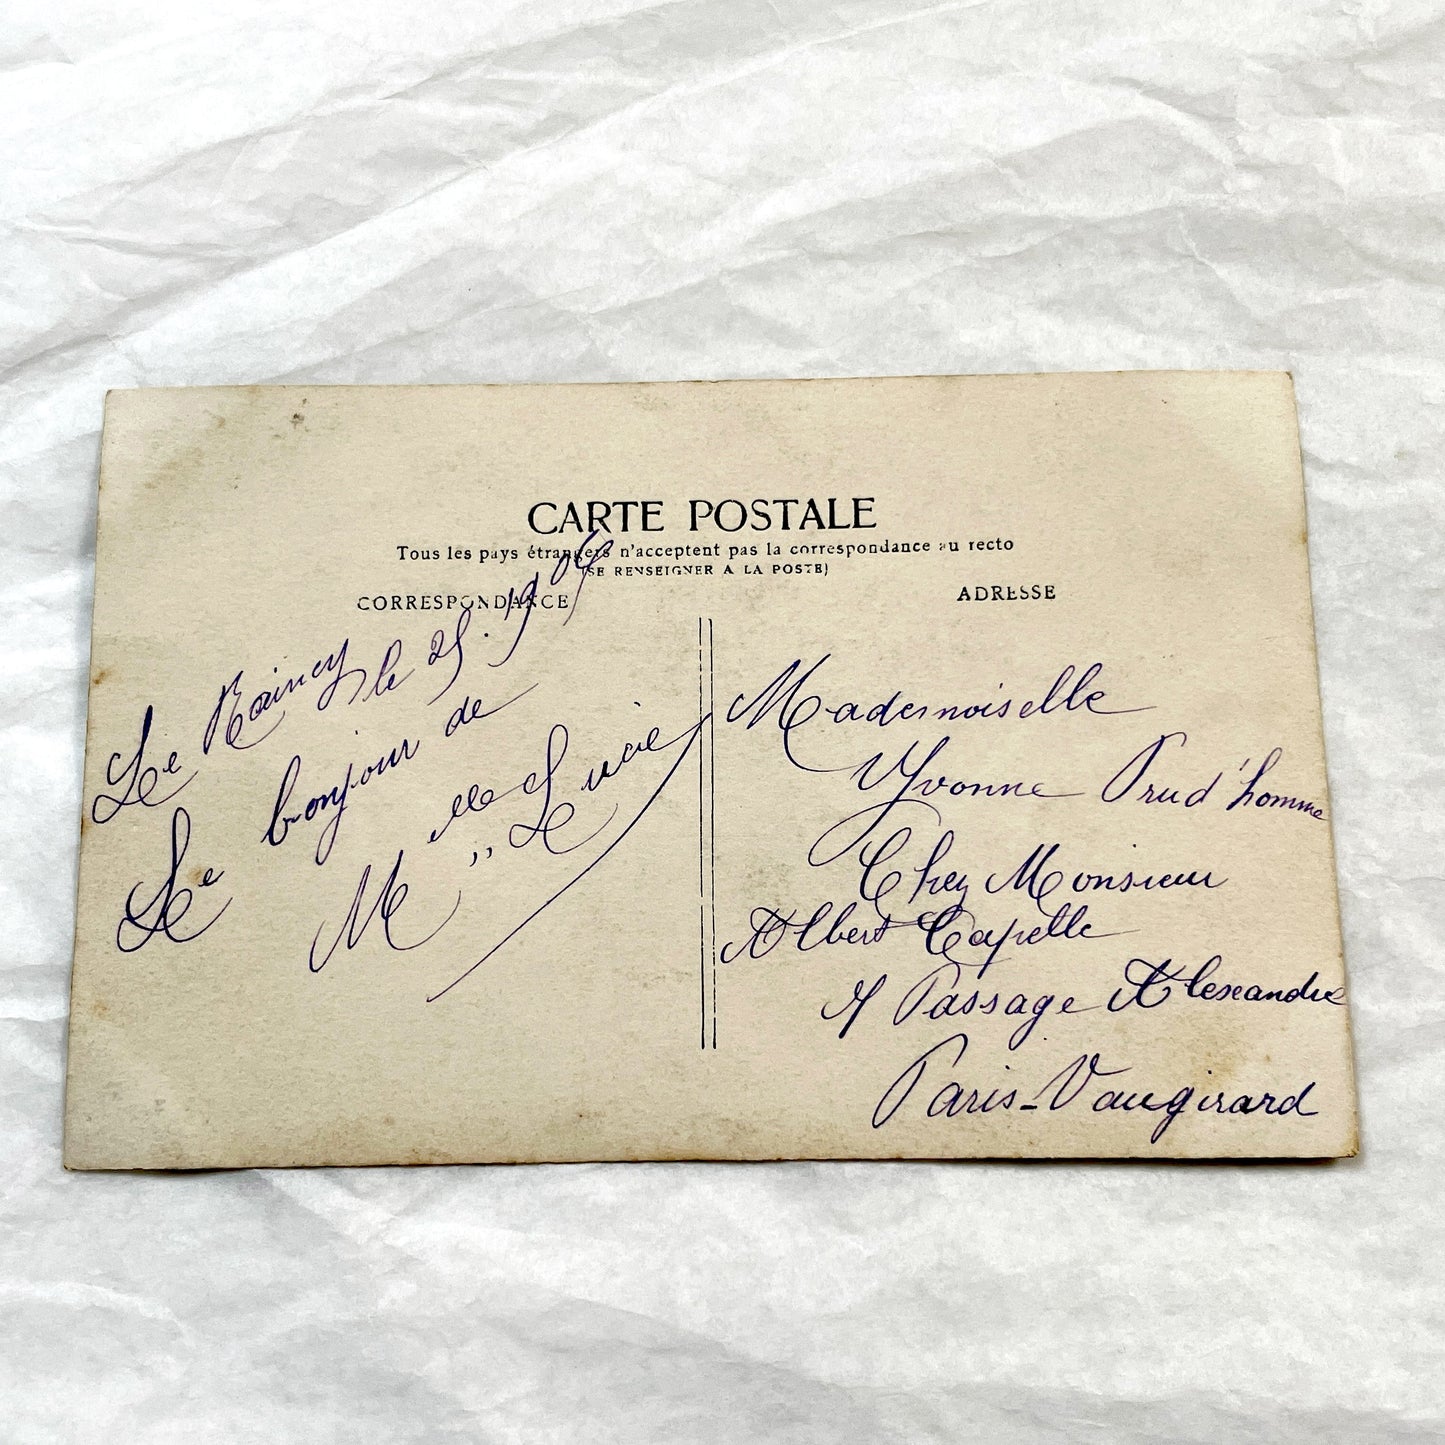 CARTE POSTALE
Tous les pays étrangers n'acceptent pas la correspondance au recto
(SE RENSEIGNER A LA POSTE)
CORRESPONDANCE
ADRESSE
Le Raincy le 25.
Le bonjour de
Mlle Lucie
Mademoiselle
Yvonne Prud'homme
Chez Monsieur
Albert Capelle
Passage Alexandre
Paris-Vaugirard